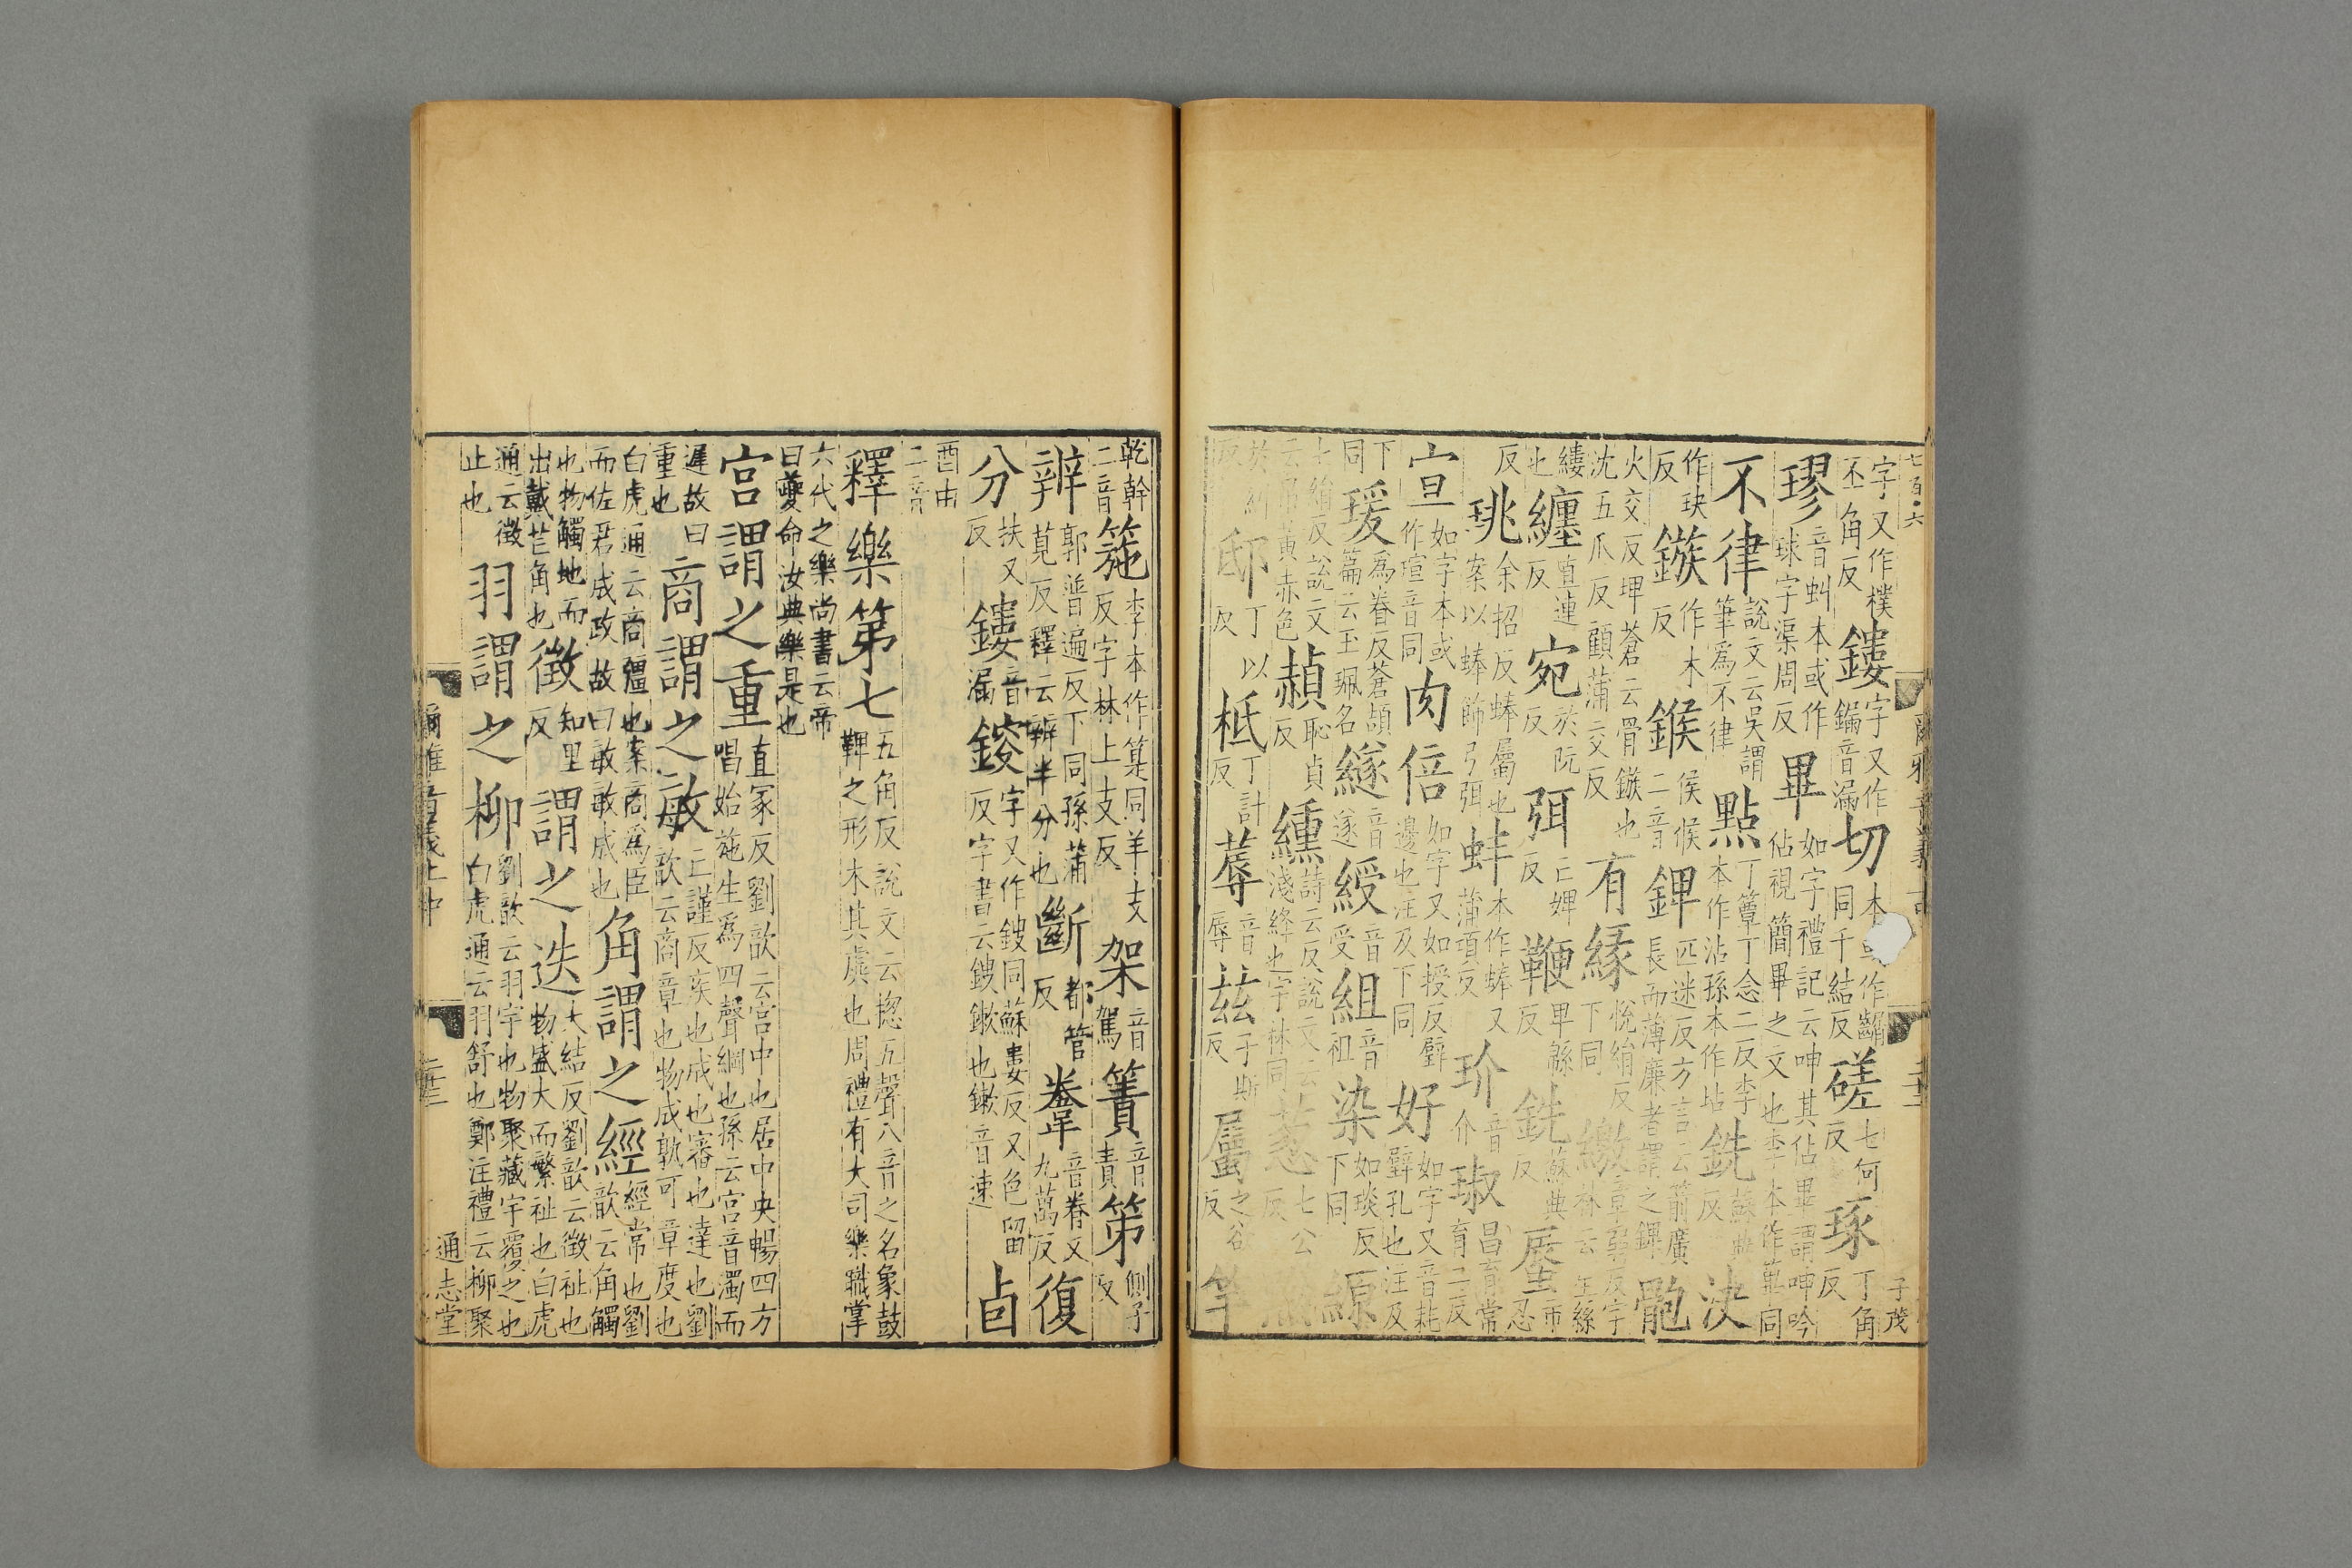 字又作樸丕角反鏤字又作鏥音漏切本或作齛同千結反磋七何反琢丁角反
璆音虯本或作球字渠周反畢如字禮記云呻其佔畢謂呻吟佔視簡畢之文也李本作篳同
不律說文云吳謂筆爲不律點丁簟丁念二反李本作沾孫本作坫銑蘇典反決
作玦反鏃作木反鍭侯候二音錍匹迷反方言云箭廣長而薄廉者謂之錍骲
火交反埤蒼云骨鏃也沈五爪反顧蒲交反有緣悅絹反下同繳章弱反字林云生絲
縷也纏直連反宛於阮反弭亡婢反鞭卑緜反銑蘇典反蜃市忍
反珧余招反蜯屬也案以蜯飾弓弭蚌本作蜯又蒲項反玠音介琡昌育常育二反
宣如字本或作瑄音同肉倍如字又如授反璧邊也注及下同好如字又音耗璧孔也注及
下同瑗爲眷反蒼頡篇云玉珮名繸音遂綬音受組音祖染如琰反下同縓
七絹反說文云帛黃赤色赬恥貞反纁詩云反說文云淺絳也字林同葱七公反
反邸丁以反柢丁計反蓐音辱茲子斯反屬之欲反竿
乾幹二音箷李本作箟同羊支反字林上支反架音駕簀音責笫側子反
辨郭普遍反下同孫蒲莧反釋云辨半分也斷都管反韏音眷又九萬反復
分扶又反鏤音漏鋑字又作鎪同蘇婁反又色留反字書云鎪鏉也鏉音速卣
酉由二音
釋樂第七五角反說文云揔五聲八音之名象鼓鞞之形木其虡也周禮有大司樂職掌
六代之樂尚書云帝曰夔命汝典樂是也
宮謂之重直冢反劉歆云宮中也居中央暢四方唱始施生爲四聲綱也孫云宮音濁而
遲故曰重也商謂之敏亡謹反疾也成也審也達也劉歆云商章也物成孰可章度也
白虎通云商彊也案商爲臣而佐君成政故曰敏敏成也角謂之經經常也劉歆云角觸
也物觸地而出戴芒角也徵知里反謂之迭大結反劉歆云徵祉也物盛大而繁祉也白虎
通云徵止也羽謂之柳劉歆云羽宇也物聚藏宇覆之也白虎通云羽舒也鄭注禮云柳聚
爾雅音義上中
通志堂